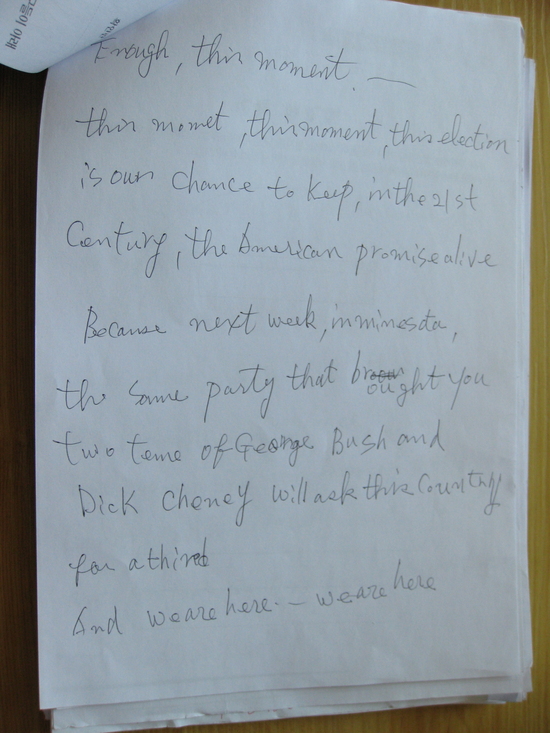 Enough, this moment. —
this momet, this moment, this election
is our chance to keep, in the 21st
Century, the American promise alive
Because next week, in minesota,
the same party that brought you
two teme of George Bush and
Dick Cheney will ask this Country
for a third
And we are here. — we are here